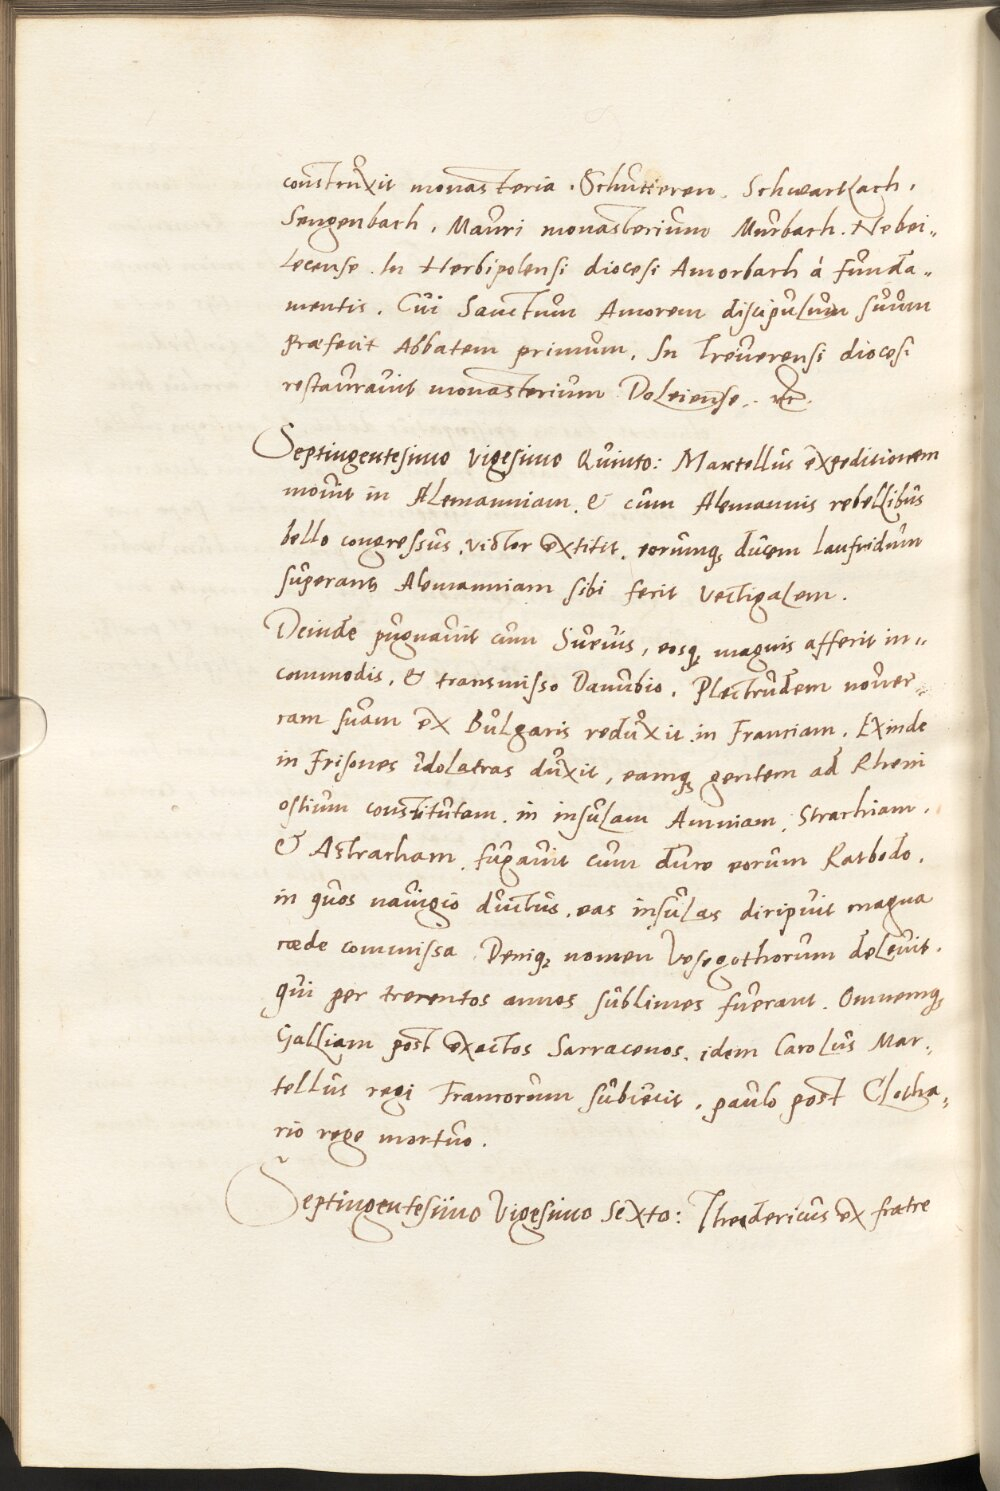 construxit monasteria. Schutteren. Schwartzach.
Sengenbach, Mauri monasterium Murbach. Nebei„
lecense. In Herbipolensi diocesi Amorbach á funda„
mentis. Cui Sanctum Amorem discipulum suum
præfecit Abbatem primum. In Treuerensi diocesi
restaurauit monasterium Doleiense. &c.
Septingentesimo Vigesimo Quinto: Martellus expeditionem
mouit in Alemanniam. & cum Alemannis rebellibus
bello congressus, victor extitit. eorumq; ducem laufridum
superans Alemanniam sibi fecit vectigalem.
Deinde pugnauit cum Sueuis, eosq; magnis affecit in„
commodis, & transmisso Danubio. Plectrudem nouer„
cam suam ex Bulgaris reduxit in Franciam. Exinde
in Frisones idolatras duxit, eamq; gentem ad Rheni
ostium constitutam. in insulam Amniam, Strachiam.
& Astracham. fugauit cum duce eorum Ratbodo.
in quos nauigio ductus. eas insulas diripuit magna
cæde commissa. Deniq; nomen Vesegothorum deleuit.
qui per trecentos annos sublimes fuerant. Omnemq;
Galliam post exactos Sarracenos. idem Carolus Mar„
tellus regi Francorum subiecit. paulo post Clotha„
rio rege mortuo.
Septingentesimo Vigesimo Sexto: Theodericus ex fratre